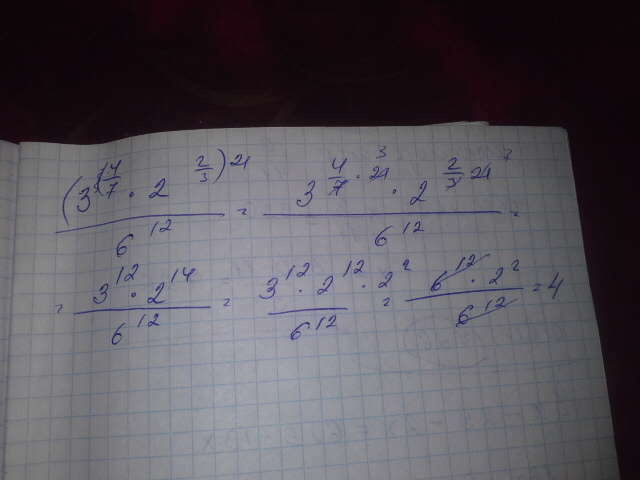 (3^(4/7) · 2^(2/3))^21 / 6^12 = 3^(4/7 · 21) · 2^(2/3 · 21) / 6^12 =
= 3^12 · 2^14 / 6^12 = 3^12 · 2^12 · 2^2 / 6^12 = 6^12 · 2^2 / 6^12 = 4